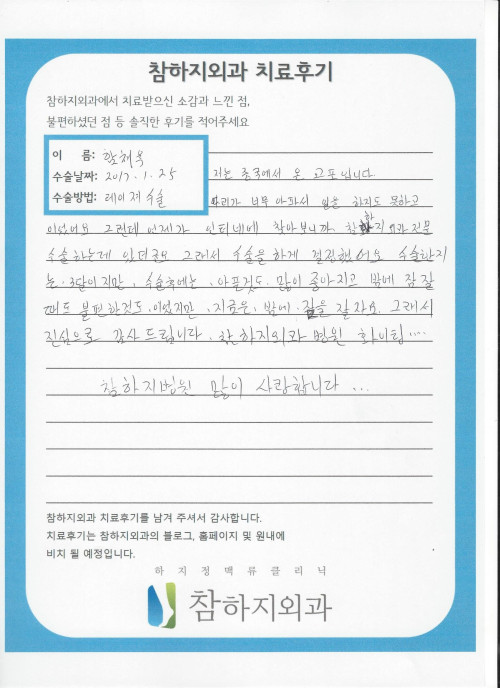 참하지외과 치료후기
참하지외과에서 치료받으신 소감과 느낀 점,
불편하셨던 점 등 솔직한 후기를 적어주세요
이 름: 한해옥
수술날짜: 2017. 1. 25
수술방법: 레이저 수술
저는 중국에서 온 교포입니다
다리가 너무 아파서 일을 하지도 못하고
있었어요 그런데 언제가 인터네에 찾아보니까 참하지외과 전문
수술하는데 있더군요 그래서 수술을 하게 결정했어요 수술한지
는 3달이지만, 수술후에는 아픈것도 많이 좋아지고 밖에 잠잘
때도 불편한것도 있었지만, 지금은, 밤에 잠을 잘자요. 그래서
진심으로 감사드립니다. 참하지외과 병원 화이팅....
참하지병원 많이 사랑합니다 ...
참하지외과 치료후기를 남겨 주셔서 감사합니다.
치료후기는 참하지외과의 블로그, 홈페이지 및 원내에
비치 될 예정입니다.
하지정맥류클리닉
참하지외과